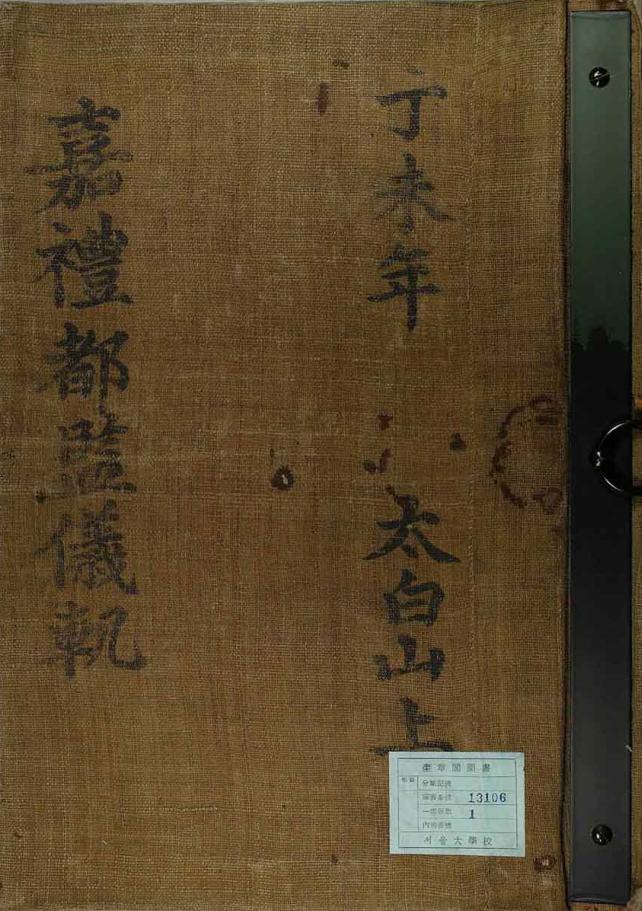 丁未年 太白山上
嘉禮都監儀軌
奎章閣圖書
分類記號
圖書番號 13106
一連冊數 1
內容番號
서울大學校